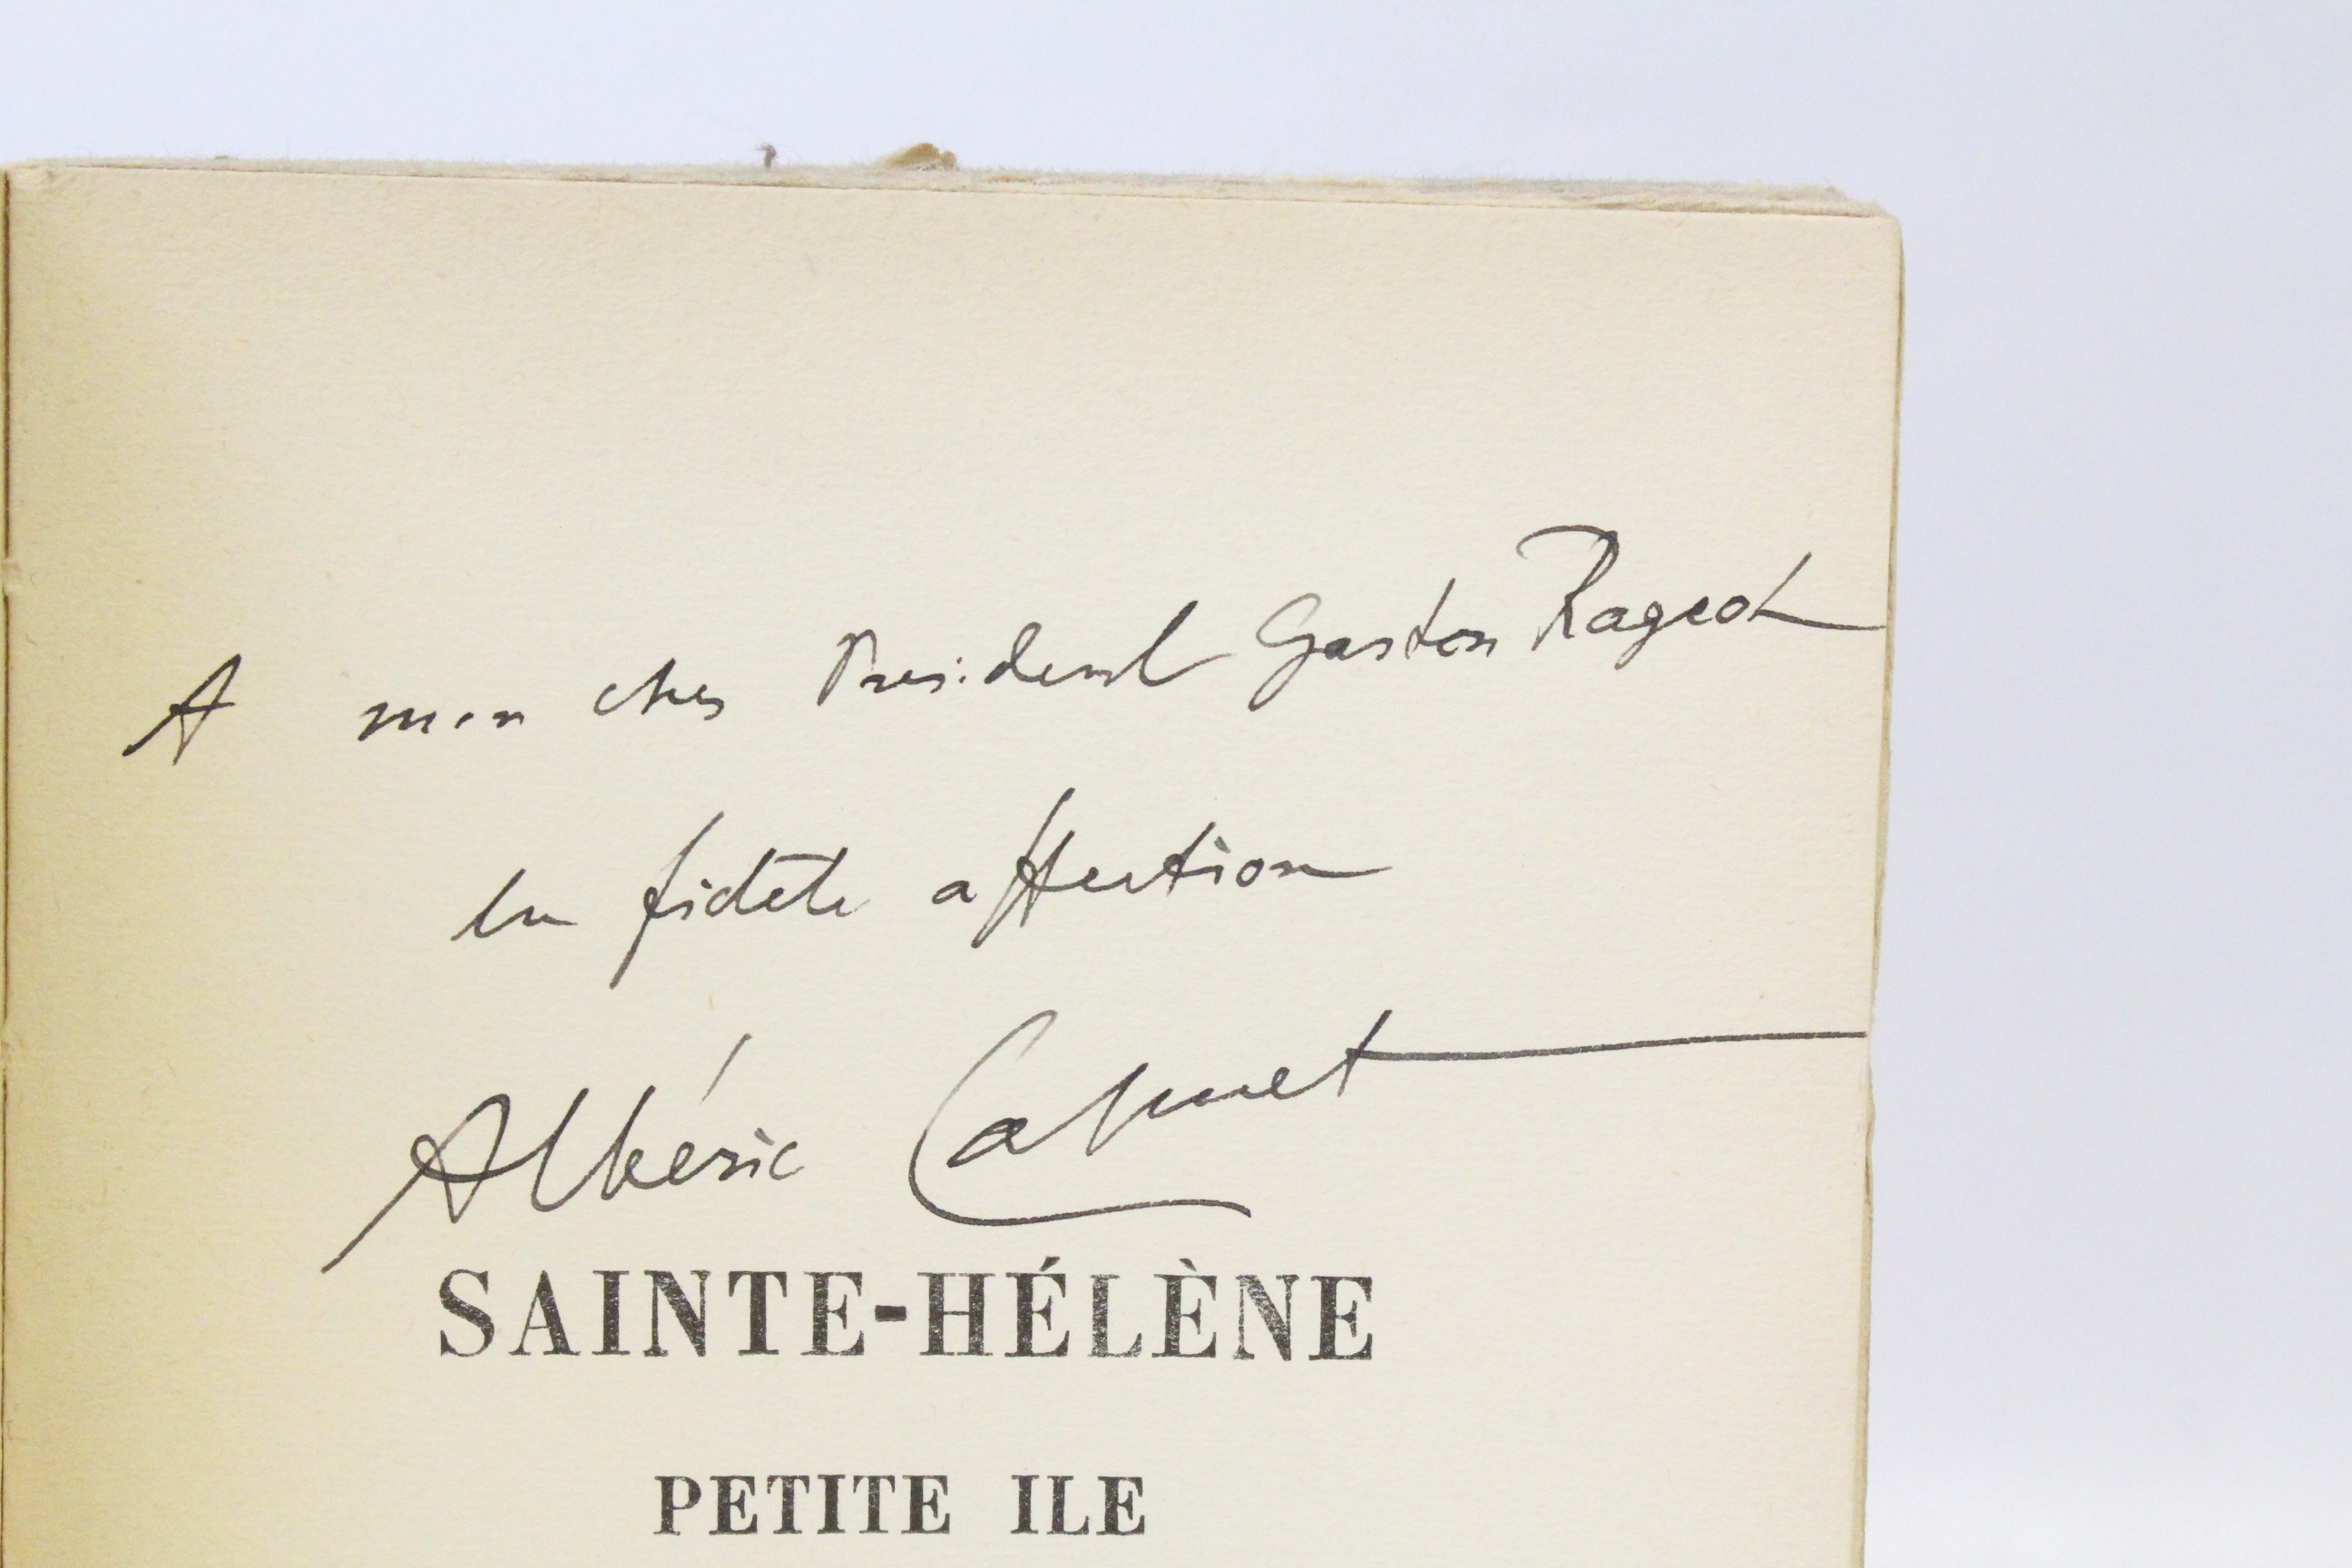 A mon cher Président Gaston Rageot
en fidèle affection
Albéric Cahuet
SAINTE-HÉLÈNE
PETITE ILE